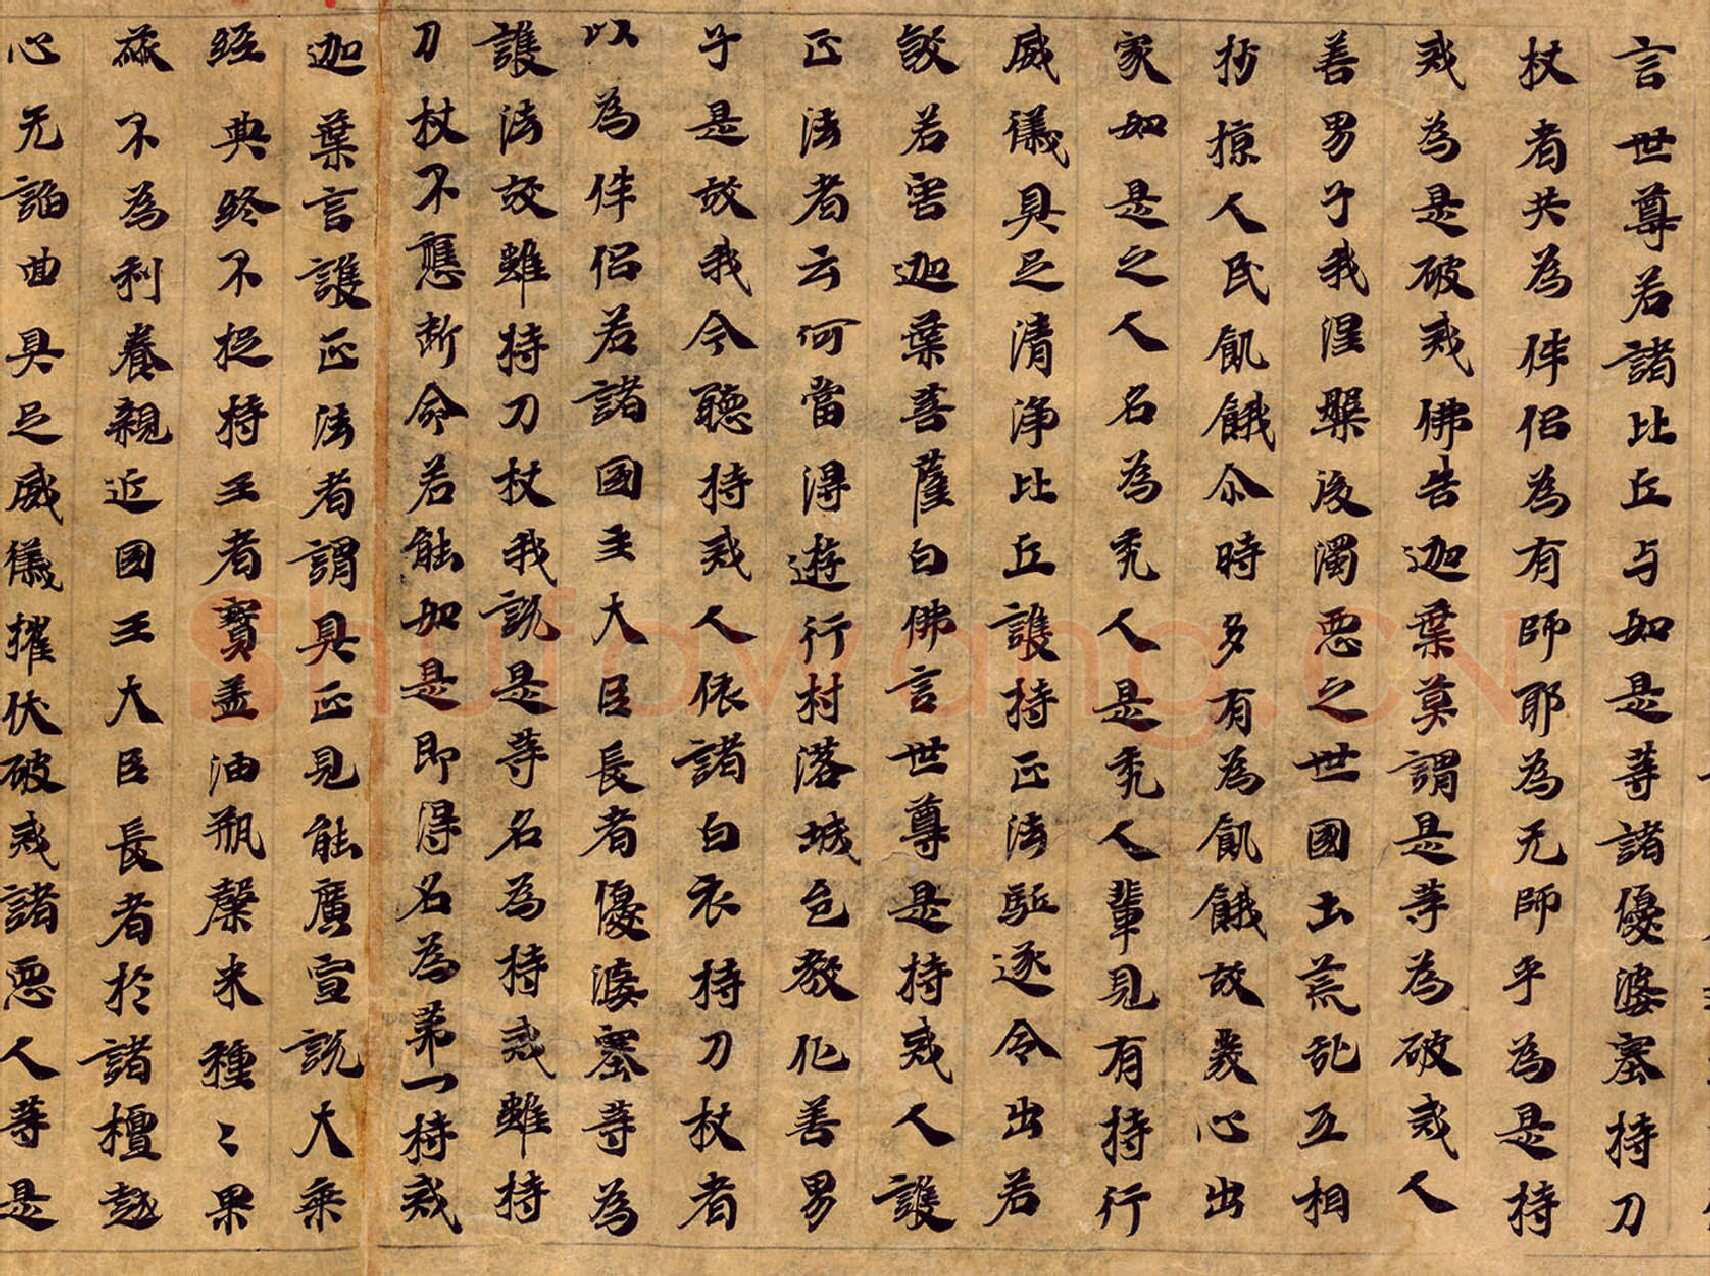 言世尊若諸比丘与如是等諸優婆塞持刀
杖者共為伴侶為有師耶為无師乎為是持
戒為是破戒佛告迦葉莫謂是等為破戒人
善男子我涅槃後濁惡之世國土荒乱互相
抄掠人民飢餓尒時多有為飢餓故發心出
家如是之人名為禿人是禿人輩見有持行
威儀具足清淨比丘護持正法駈逐令出若
殺若害迦葉菩薩白佛言世尊是持戒人護
正法者云何當得遊行村落城邑教化善男
子是故我今聽持戒人依諸白衣持刀杖者
以為伴侶若諸國王大臣長者優婆塞等為
護法故雖持刀杖我說是等名為持戒雖持
刀杖不應斷命若能如是即得名為第一持戒
迦葉言護正法者謂具正見能廣宣說大乘
經典終不捉持王者寶蓋油瓶穀米種〻果
蓏不為利養親近國王大臣長者於諸檀越
心无諂曲具足威儀摧伏破戒諸惡人等是
shufawang.cn